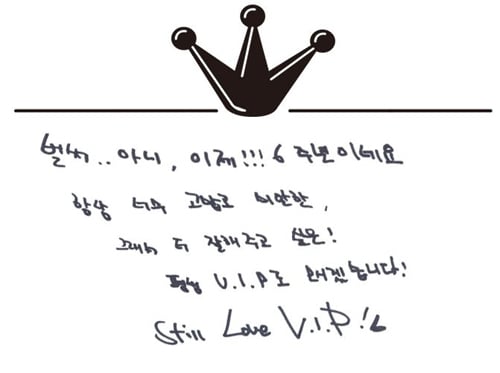 벌써.. 아니, 이제!!! 6주년이네요
항상 너무 고맙고 미안한,
그래서 더 잘해주고 싶은!
평생 V.I.P로
Still Love V.I.P!